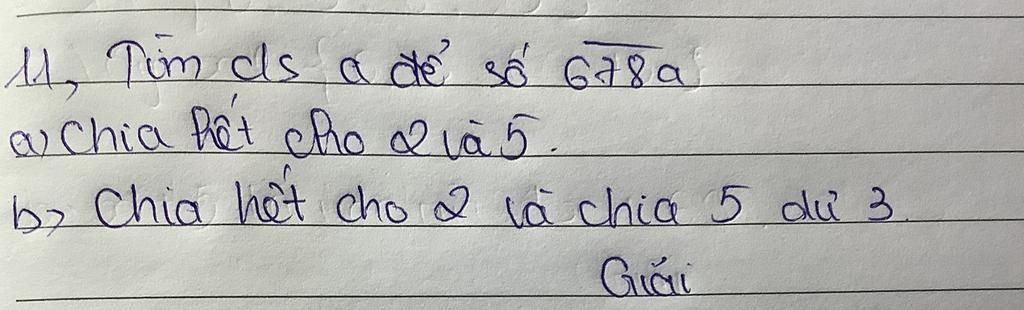 11, Tìm c/s a để số 678a
a) Chia hết cho 2 và 5.
b, Chia hết cho 2 và chia 5 dư 3.
Giải